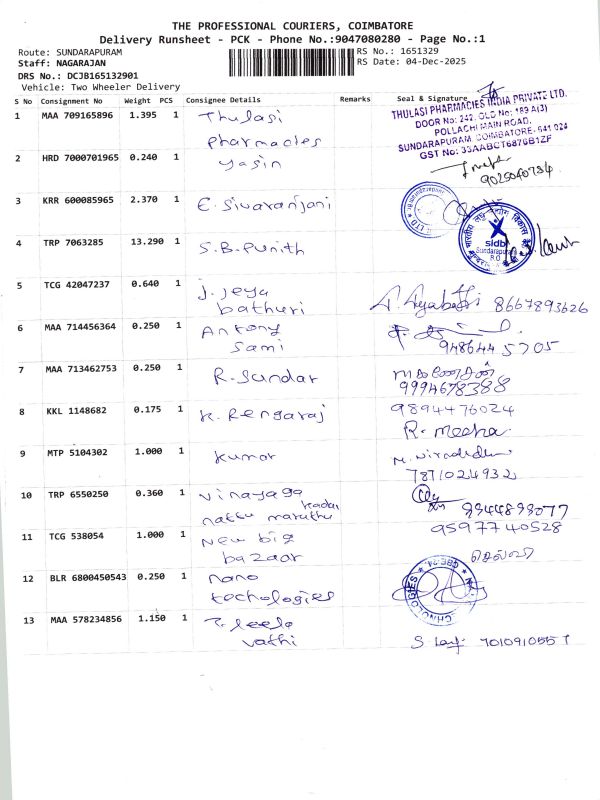 THE PROFESSIONAL COURIERS, COIMBATORE
Delivery Runsheet - PCK - Phone No.:9047080280 - Page No.:1
Route: SUNDARAPURAM
RS No.: 1651329
Staff: NAGARAJAN
RS Date: 04-Dec-2025
DRS No.: DCJB165132901
Vehicle: Two Wheeler Delivery
S No Consignment No Weight PCS Consignee Details Remarks Seal & Signature
1 MAA 709165896 1.395 1 Thulasi pharmacies
THULASI PHARMACIES INDIA PRIVATE LTD.
DOOR No: 242, OLD No: 189 A(3)
POLLACHI MAIN ROAD,
SUNDARAPURAM, COIMBATORE, 641 024
GST No: 33AABCT6876B1ZF
2 HRD 7000701965 0.240 1 yasin
9025040734
3 KRR 600085965 2.370 1 E. Sivaranjani
4 TRP 7063285 13.290 1 S.B. Punith
sidbi
Sundarapuram
B.O
5 TCG 42047237 0.640 1 J. Jeya bathuri
8667893626
6 MAA 714456364 0.250 1 Antony Sami
9486445705
7 MAA 713462753 0.250 1 R. Sundar
9994678388
8 KKL 1148682 0.175 1 K. Rengaraj
9894476024
R. Meena
9 MTP 5104302 1.000 1 Kumar
7871024932
10 TRP 6550250 0.360 1 Vinayaga nattu marathu kadai
9944899077
11 TCG 538054 1.000 1 New big bazaar
9597740528
செல்வி
12 BLR 6800450543 0.250 1 nano techologies
13 MAA 578234856 1.150 1 T. leela vathi
7010910557